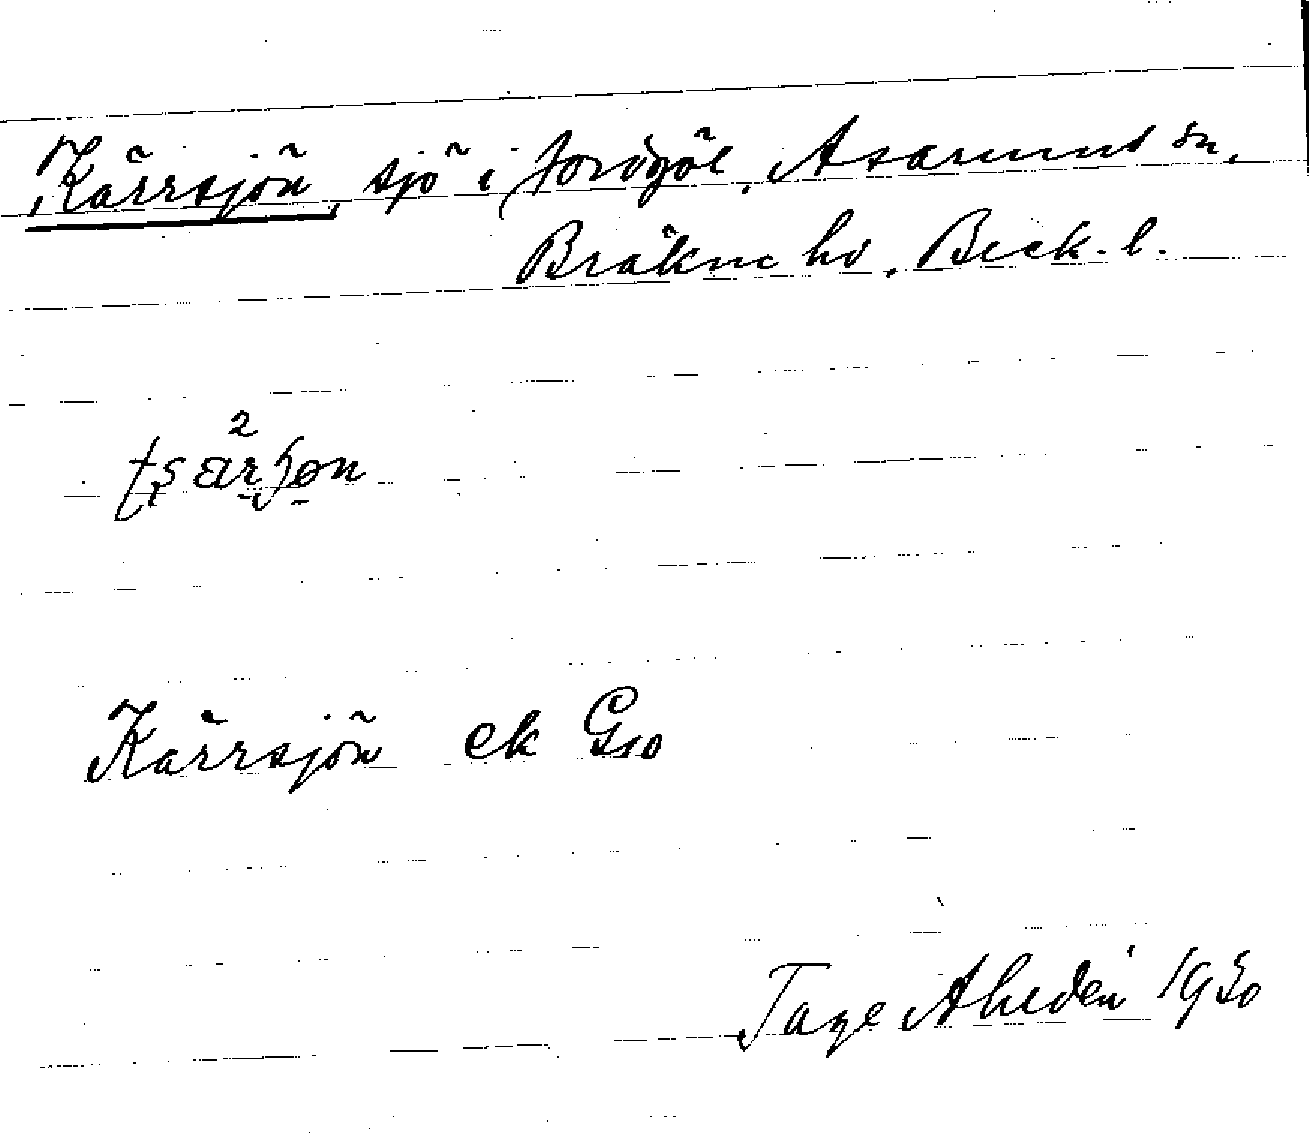 Kärrsjön, sjö i Jordgöl, Asarums sn,
Bräkne hd, Blek. l.
Kärrsjön ek G10
Tage Ahldén 1930